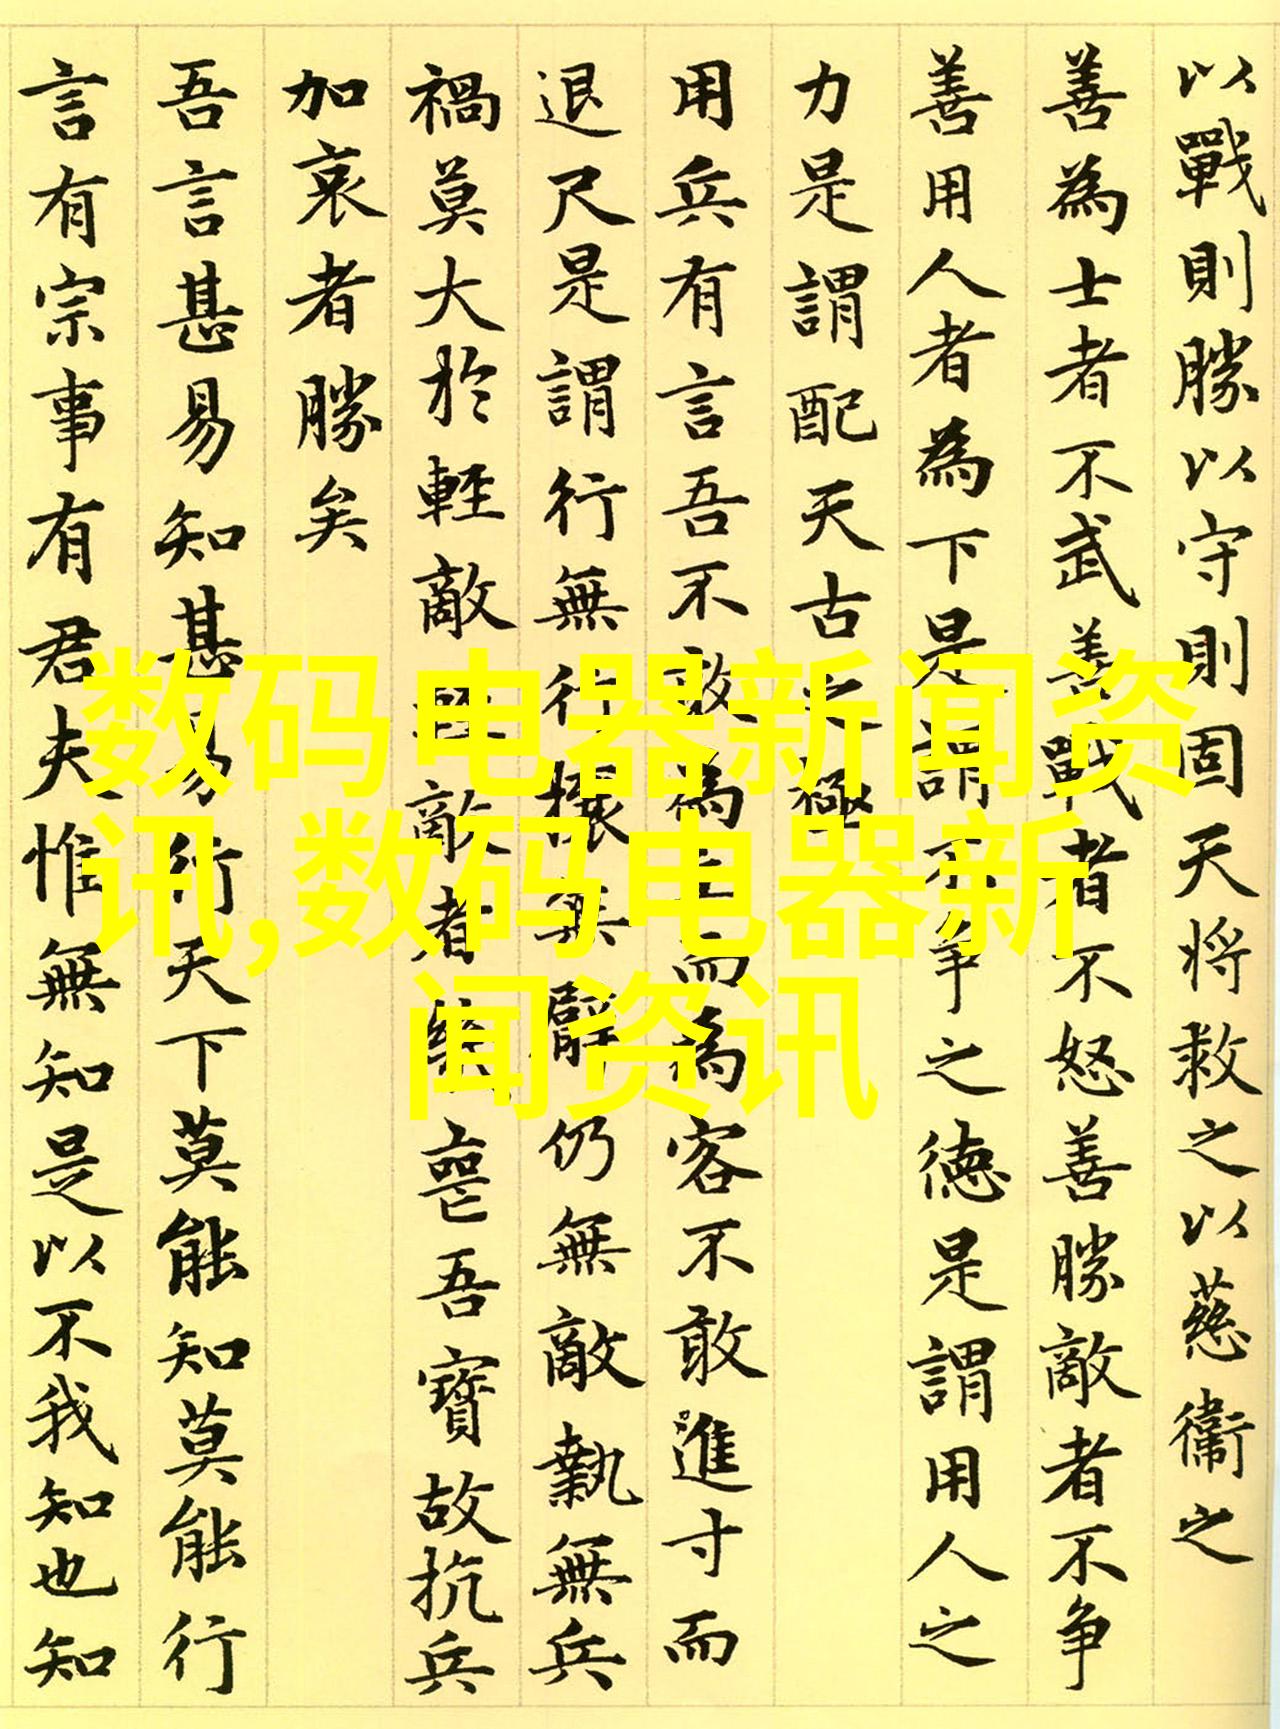 以戰則勝以守則固天将救之以慈衞之
善為士者不武善戰者不怒善勝敵者不争
善用人者為下是謂不争之德是謂用人之
力是謂配天古之極
用兵有言吾不敢為主而為客不敢進寸而
退尺是謂行無行攘無臂仍無敵執無兵
禍莫大於輕敵輕敵者幾喪吾寶故抗兵
加哀者勝矣
吾言甚易知甚易行天下莫能知莫能行
言有宗事有君夫惟無知是以不我知也知
数码电器新闻资
讯,数码电器新
闻资讯